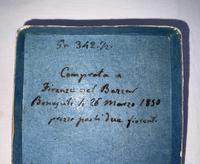 Gr. 342 1/2.
Comprata a
Firenze nel Bazzar
Bonajuti li 26 Marzo 1850
prezzo paoli due fiorent.